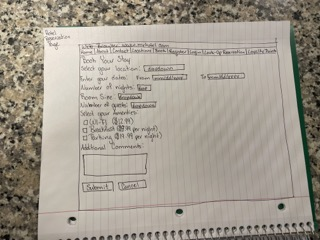 Hotel
Reservation
Page
Home | About | Contact | Locations | Book | Register | Login | Look-Up Reservation | Loyalty Points
Book Your Stay
Select your location: dropdown
Enter your dates: From mm/dd/yyyy To mm/dd/yyyy
Number of nights:
Room Size: dropdown
Number of guests: dropdown
Select your Amenities:
Wi-Fi ($12.99)
Breakfast ( per night)
Parking ($19.99 per night)
Additional Comments:
Submit Cancel